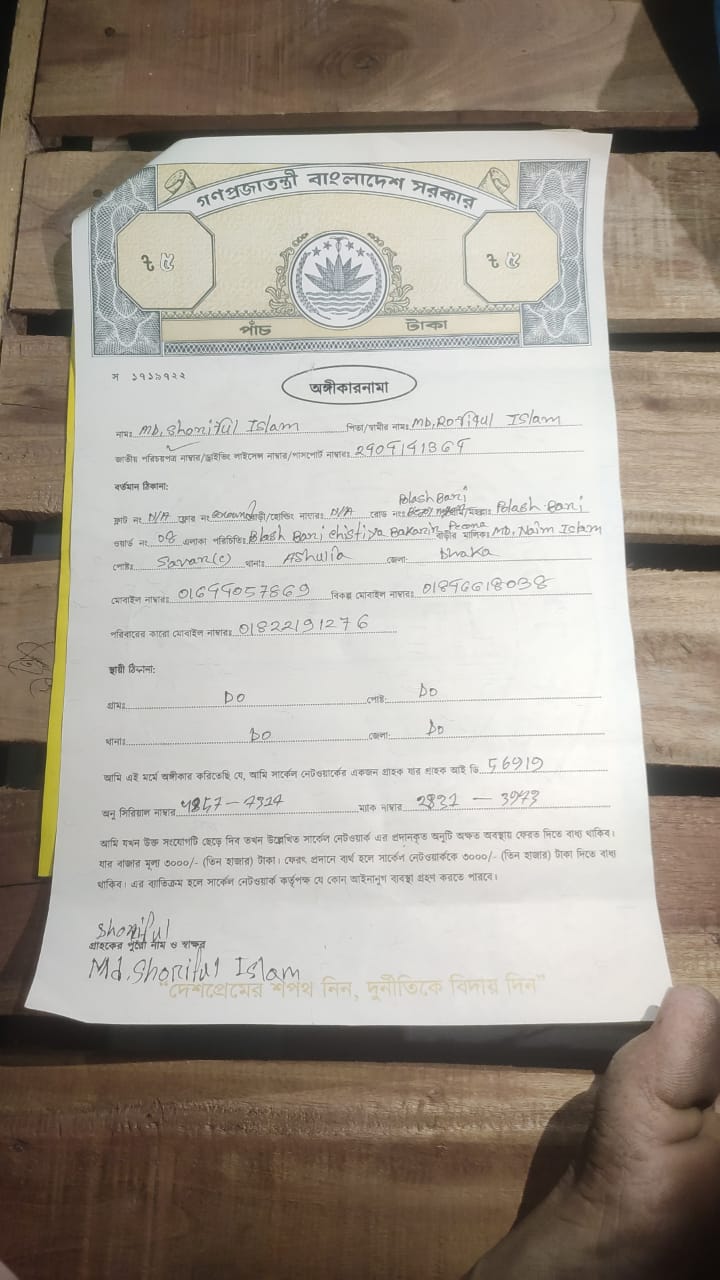 গণপ্রজাতন্ত্রী বাংলাদেশ সরকার
৳ ৫
৳ ৫
পাঁচ টাকা
স ১৭১৯৭২২
অঙ্গীকারনামা
নামঃ MD. Shoriful Islam পিতা/স্বামীর নামঃ MD. Rofiqul Islam
জাতীয় পরিচয়পত্র নাম্বার/ড্রাইভিং লাইসেন্স নাম্বার/পাসপোর্ট নাম্বারঃ
বর্তমান ঠিকানা:
Polash Bari
ফ্লাট নং N/A ফ্লোর নং Ground বাড়ী/হোল্ডিং নাম্বারঃ N/A রোড নং Polash Bari
ওয়ার্ড নং 08 এলাকা পরিচিতিঃ Plash Bari Chistiya বাড়ীর মালিকঃ MD. Naim Islam
পোষ্টঃ Savar(c) থানাঃ Ashulia জেলাঃ Dhaka
মোবাইল নাম্বারঃ 01644057869 বিকল্প মোবাইল নাম্বারঃ 01846618038
পরিবারের কারো মোবাইল নাম্বারঃ 01822191276
স্থায়ী ঠিকানা:
গ্রামঃ Do পোষ্ট: Do
থানাঃ Do জেলা: Do
আমি এই মর্মে অঙ্গীকার করিতেছি যে, আমি সার্কেল নেটওয়ার্কের একজন গ্রাহক যার গ্রাহক আই ডি 56919
অনু সিরিয়াল নাম্বার ম্যাক নাম্বার
আমি যখন উক্ত সংযোগটি ছেড়ে দিব তখন উল্লেখিত সার্কেল নেটওয়ার্ক এর প্রদানকৃত অনুটি অক্ষত অবস্থায় ফেরত দিতে বাধ্য থাকিব।
যার বাজার মূল্য ৩০০০/- (তিন হাজার) টাকা। ফেরৎ প্রদানে ব্যর্থ হলে সার্কেল নেটওয়ার্ককে ৩০০০/- (তিন হাজার) টাকা দিতে বাধ্য
থাকিব। এর ব্যতিক্রম হলে সার্কেল নেটওয়ার্ক কর্তৃপক্ষ যে কোন আইনানুগ ব্যবস্থা গ্রহণ করতে পারবে।
Shoriful
গ্রাহকের পুরো নাম ও স্বাক্ষর
Md. Shoriful Islam
"দেশপ্রেমের শপথ নিন, দুর্নীতিকে বিদায় দিন"